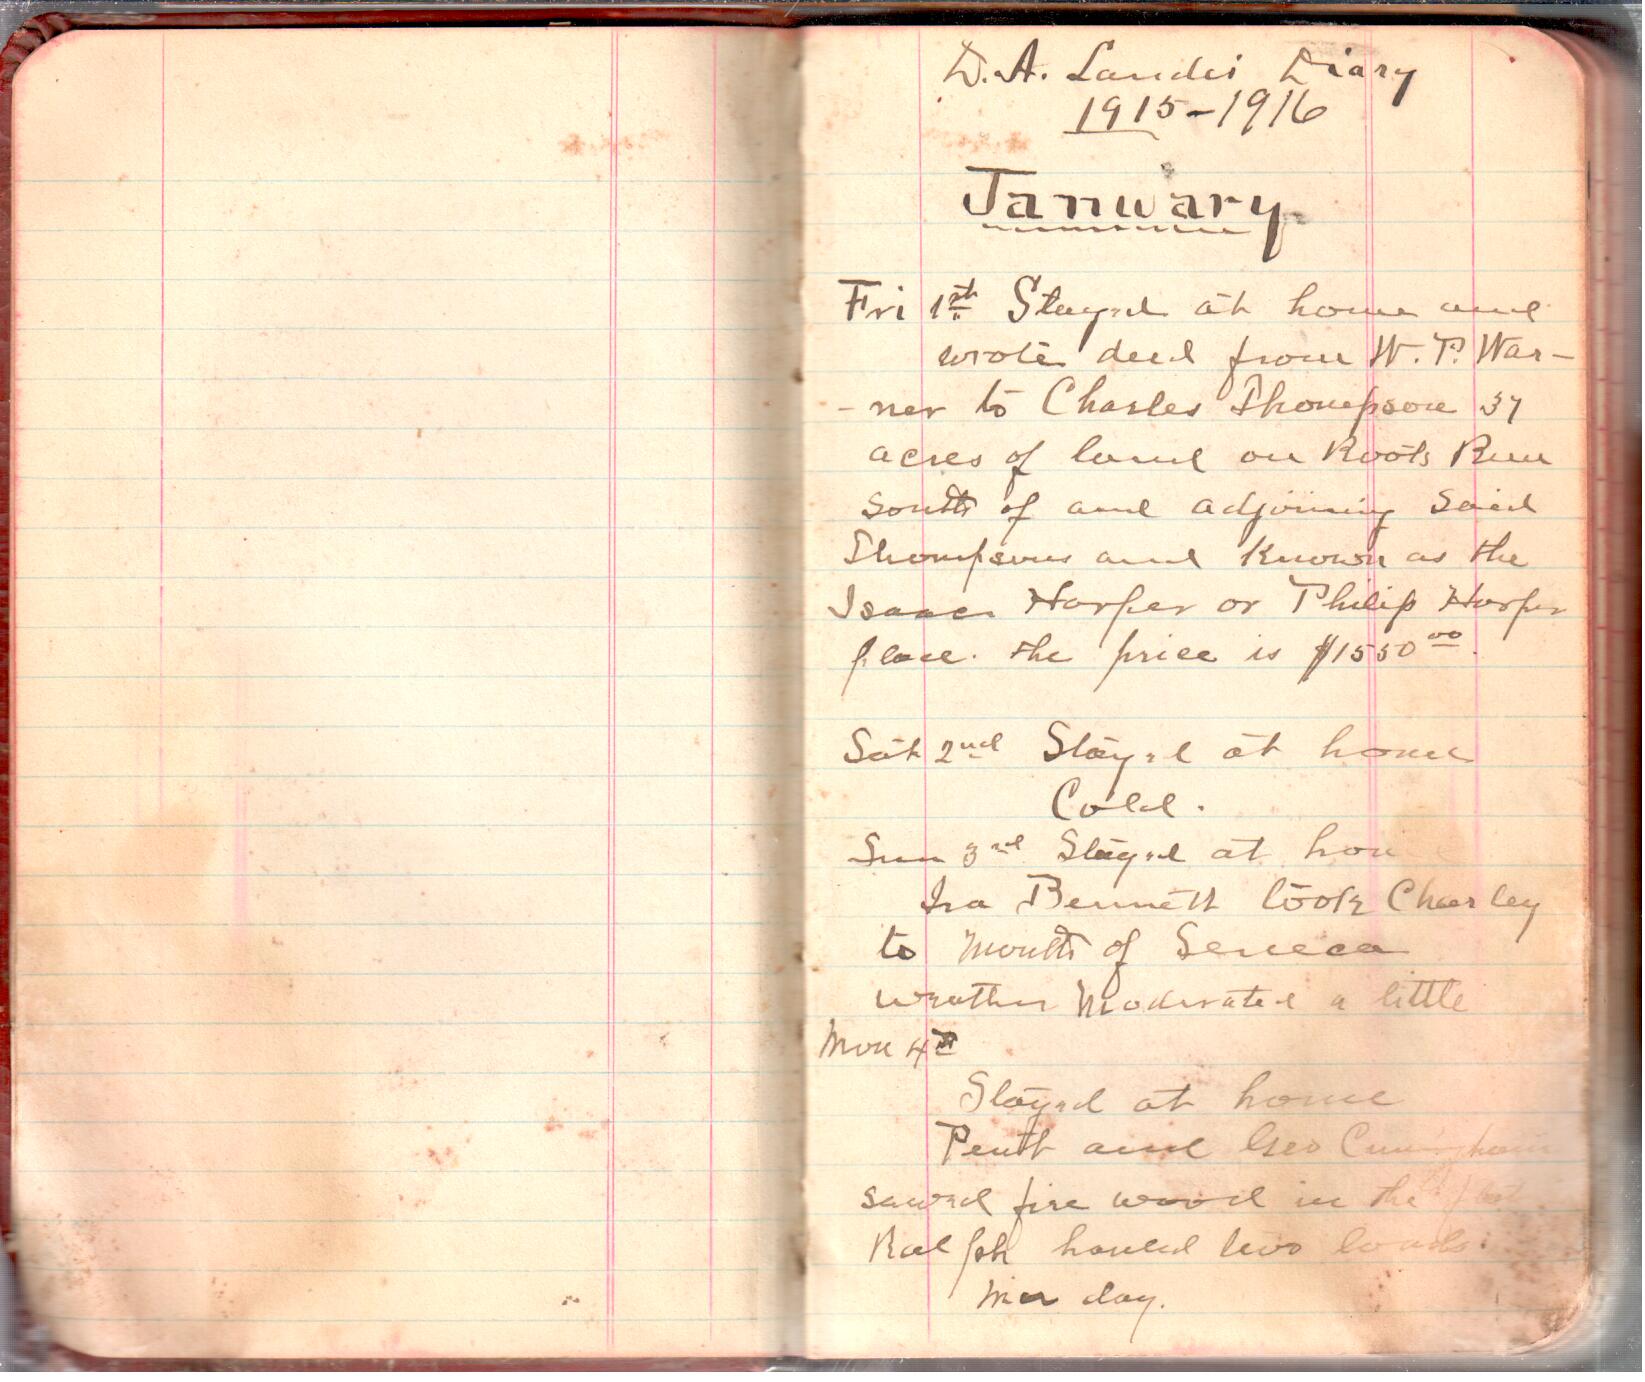 D. A. Landis Diary
1915-1916
January
Fri 1st Stayed at home and
wrote deed from W. P. War-
-ner to Charles Thompson 37
acres of land on Roots Run
south of and adjoining said
Thompsons and known as the
Isaac Harper or Philip Harper
place. the price is $1550 00.
Sat 2nd Stayed at home
Cold.
Sun 3rd Stayed at hom
Ira Bennett took Charley
to Mouth of Seneca
weather Moderated a little
Mon 4th
Stayed at home
and Geo Cunningham
sawed fire wood in the
Ralph hauled two loads.
day.